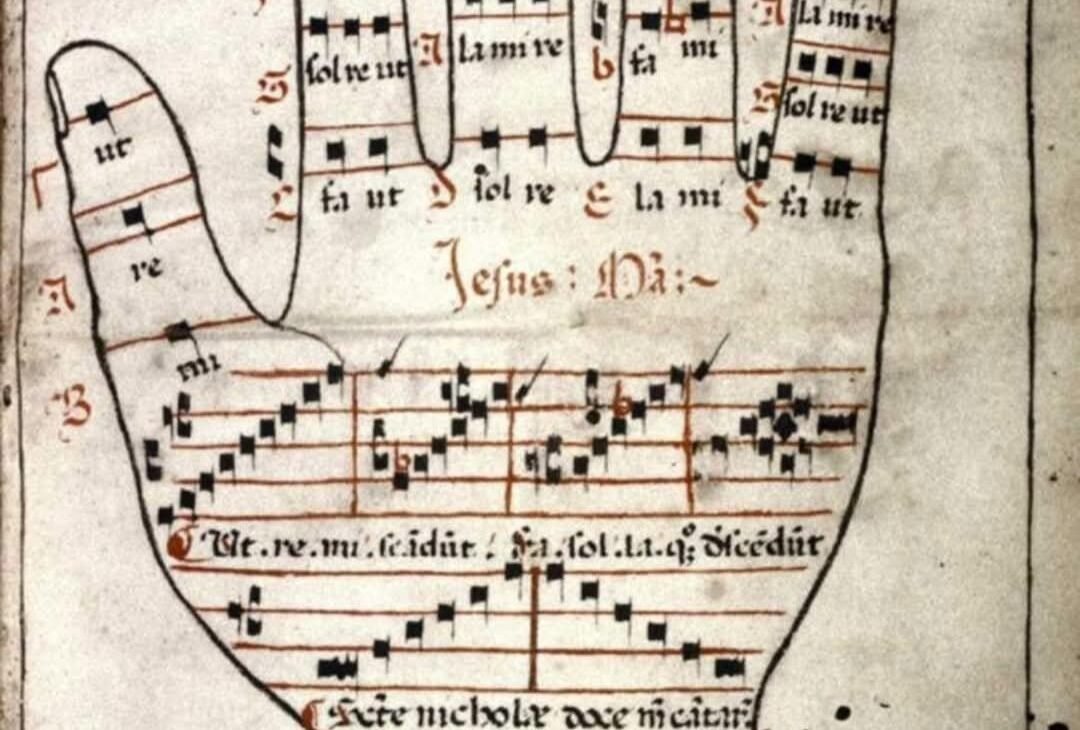 A la mi re
b fa ♮ mi
A la mi re
G sol re ut
G sol re ut
ut
C fa ut D sol re E la mi F fa ut
A re
Jesus : Mā :~
B mi
b b
Ut . re . mi . scādūt . fa . sol . la . qꝫ dʼscēdūt
Sc̄te nicholae doce m̄ cātar̄